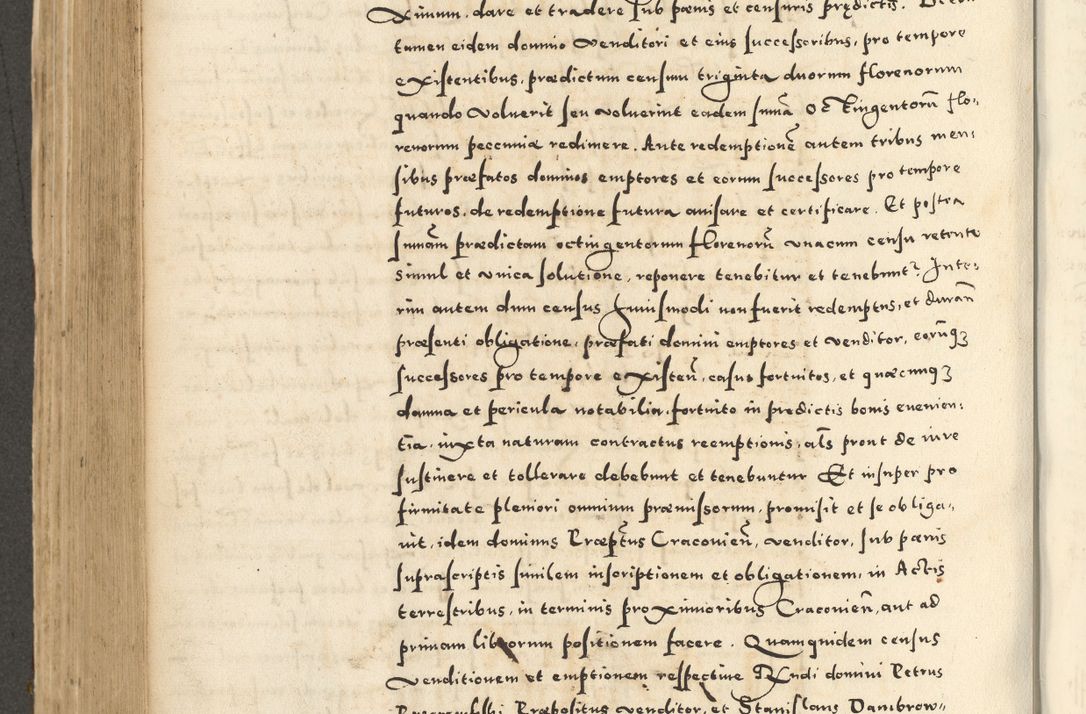 ximum, dare et tradere sub pœnis et censuris prędictis.
tamen eidem domino venditori et eius successoribus, pro tempore
existentibus, prædictum censum triginta duorum florenorum
quando voluerit seu voluerint eadem sum̃a octingentorũ flo-
renorum peccuniæ redimere. Ante redemptionẽ autem tribus men-
sibus præfatos dominos emptores et eorum successores pro tempore
futuros, de redemptione futura auisare et certificare. Et postea
sum̃am prædictam octingentorum florenorũ vnacum censu retento
simul et vnica solutione, reponere tenebitur et tenebunt². Inte-
rim autem dum census huiusmodi non fuerit redemptus, et durañ
præsenti obligatione, præfati domini emptores et venditor, eorũqꝫ
successores pro tempore existeñ, casus fortuitos, et quæcunqꝫ
damna et pericula notabilia, fortuito in prędictis bonis euenien-
tia, iuxta naturam contractus reemptionis, al̃s prout de iure
sustinere et tollerare debebunt et tenebuntur Et insuper pro
firmitate pleniori omnium præmissorum, promisit et se obliga-
uit, idem dominus Præpt̃us Craconieñ, venditor, sub pœnis
suprascriptis similem inscriptionem et obligationem, in Actis
terrestribus, in terminis proximioribus Craconieñ, aut ad
primam librorum positionem facere. Quamquidem census
venditionem et emptionem respectiue Rñdi domini Petrus
Præpositus venditor, et Stanislaus Dambrow-